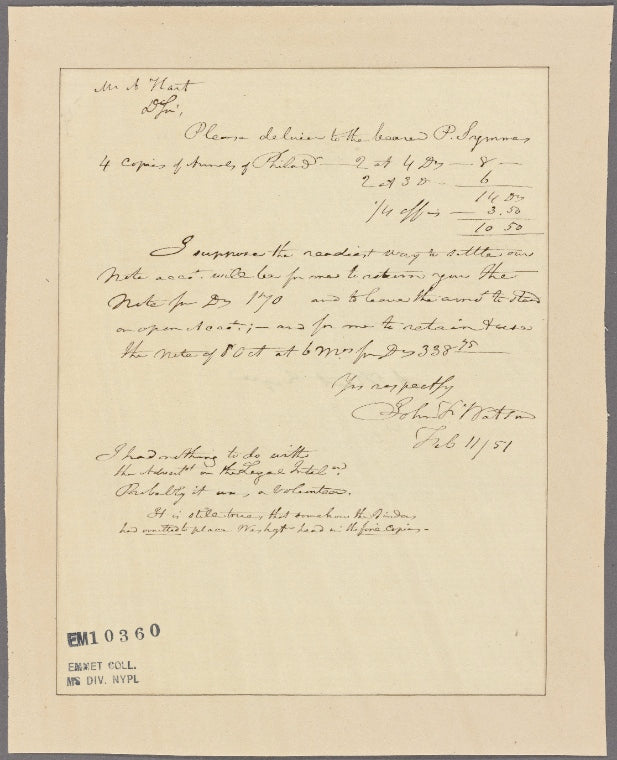 Mr A Hart
D Sir,
Please deliver to the bearer P. Symmes
4 Copies of Annals of Philada — 2 at 4 Ds — 8 —
2 at 3 D .. 6
14 Ds
1/4 off is — 3.50
10 50
I suppose the readiest way to settle our
Note acct. will be for me to return you the
Note for Ds 170 and to leave the amt to stand
on open Acct.; — and for me to retain & use
the Note of 8 Oct at 6 Mos for Ds 338 75
Yrs respectfy
John F. Watson
Feb 11/51
I had nothing to do with
the Advertt in the Legal Intel
Probably it was a Volunteer.
It is still true that somehow the Binders
had omitted to place Washgt head in the fine Copies -
EM10360
EMMET COLL.
MS DIV. NYPL